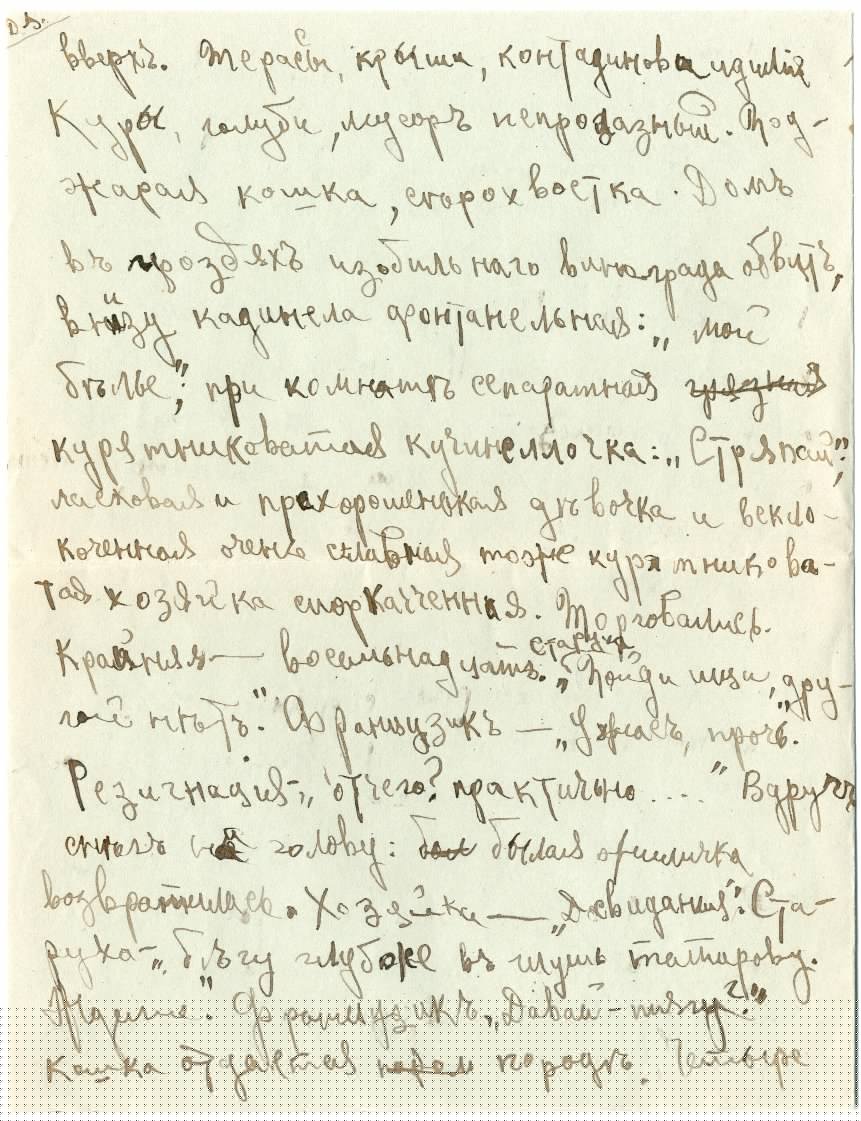 вверхъ. Терасы, крыши, контадинова идилія
Куры, голуби, мусоръ непролазный. Под-
жарая кошка, скорохвостка. Домъ
въ гроздьяхъ изобильнаго винограда обвитъ,
внизу кадинела фонтанельная: „мой
бѣлье“; при комнатѣ сепаратная грязная
курятниковатая кучинеллочка: „Стряпай“;
ласковая и прехорошенькая дѣвочка и вскло-
коченная очень славная тоже курятникова-
тая хозяйка скорчченная. Торговались.
Крайняя — восемьнадцать. старуха „Пойди ищи, дру-
гой нѣтъ“. Французикъ — „Ужасъ, прочь.
Резигнація — „отчего? практично....“ Вдругъ
снѣгъ на голову: бол былая
возвратилась. Хозяйка — „Досвиданія“. Ста-
руха — „бѣгу глубже въ глушь татарову.
Французикъ „Давай — пяту?“
Кошка отдается породѣ. Четыре